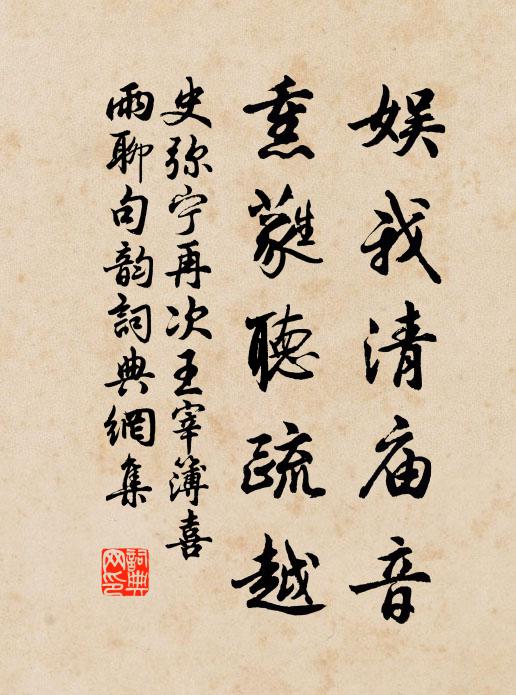 娱我清庙音
熏蕤聽疏越
史弥宁再次王宰簿喜
雨聊句韵詞典網集
詞典网印